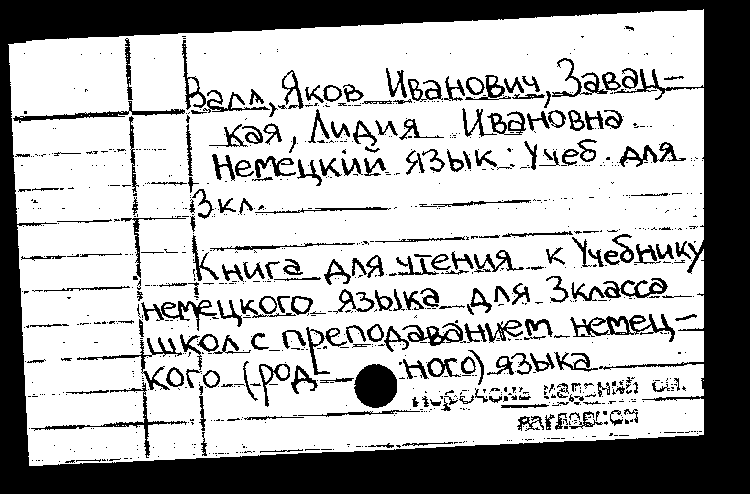 Валл, Яков Иванович, Завац-
кая, Лидия Ивановна.
Немецкий язык: Учеб. для
3 кл.
Книга для чтения к Учебнику
немецкого языка для 3 класса
школ с преподаванием немец-
кого (род- ного) языка
изданий см.